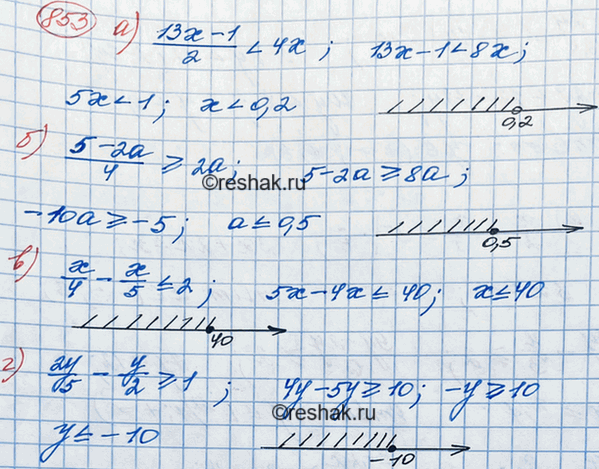 853 а) (13x-1)/2 < 4x ; 13x-1<8x;
5x<1; x<0,2
0,2
б) (5-2a)/4 ≥ 2a; 5-2a≥8a;
©reshak.ru
-10a≥-5; a≤0,5
0,5
в) x/4 - x/5 ≤2; 5x-4x≤40; x≤40
40
г) 2y/5 - y/2 ≥1 ; 4y-5y≥10; -y≥10
©reshak.ru
y≤-10
-10